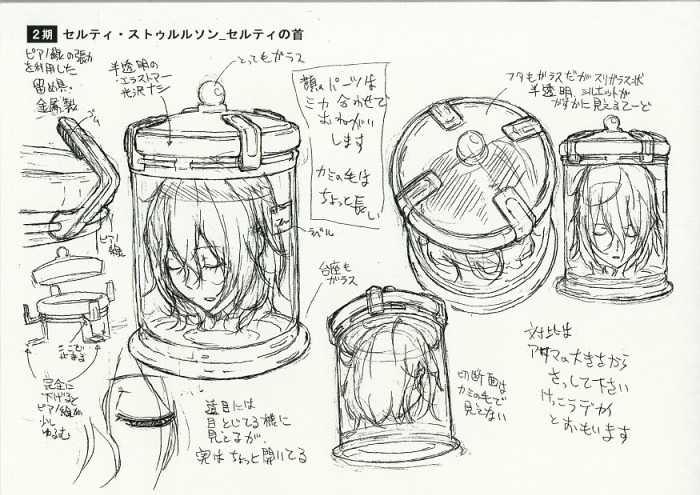 2期 セルティ・ストゥルルソン_セルティの首
ピアノ線の張力
を利用した
留め具・
金属製
ゴム
半透明の
・エラストマー
光沢ナシ
とってもガラス
顔のパーツは
ミカ合わせで
おねがい
します
カミの毛は
ちょっと長い
フタもガラスだがスリガラス状
半透明 シルエットが
かすかに見えるてーど
ラベル
ピアノ
線
台座も
ガラス
ここで
止まる
完全に
下げると
ピアノ線が
少し
ゆるむ
遠目には
目とじてる様に
見えるが、
実はちょっと開いてる
切断面は
カミの毛で
見えない
対比は
アタマの大きさから
さっして下さい
けっこうデカイ
とおもいます